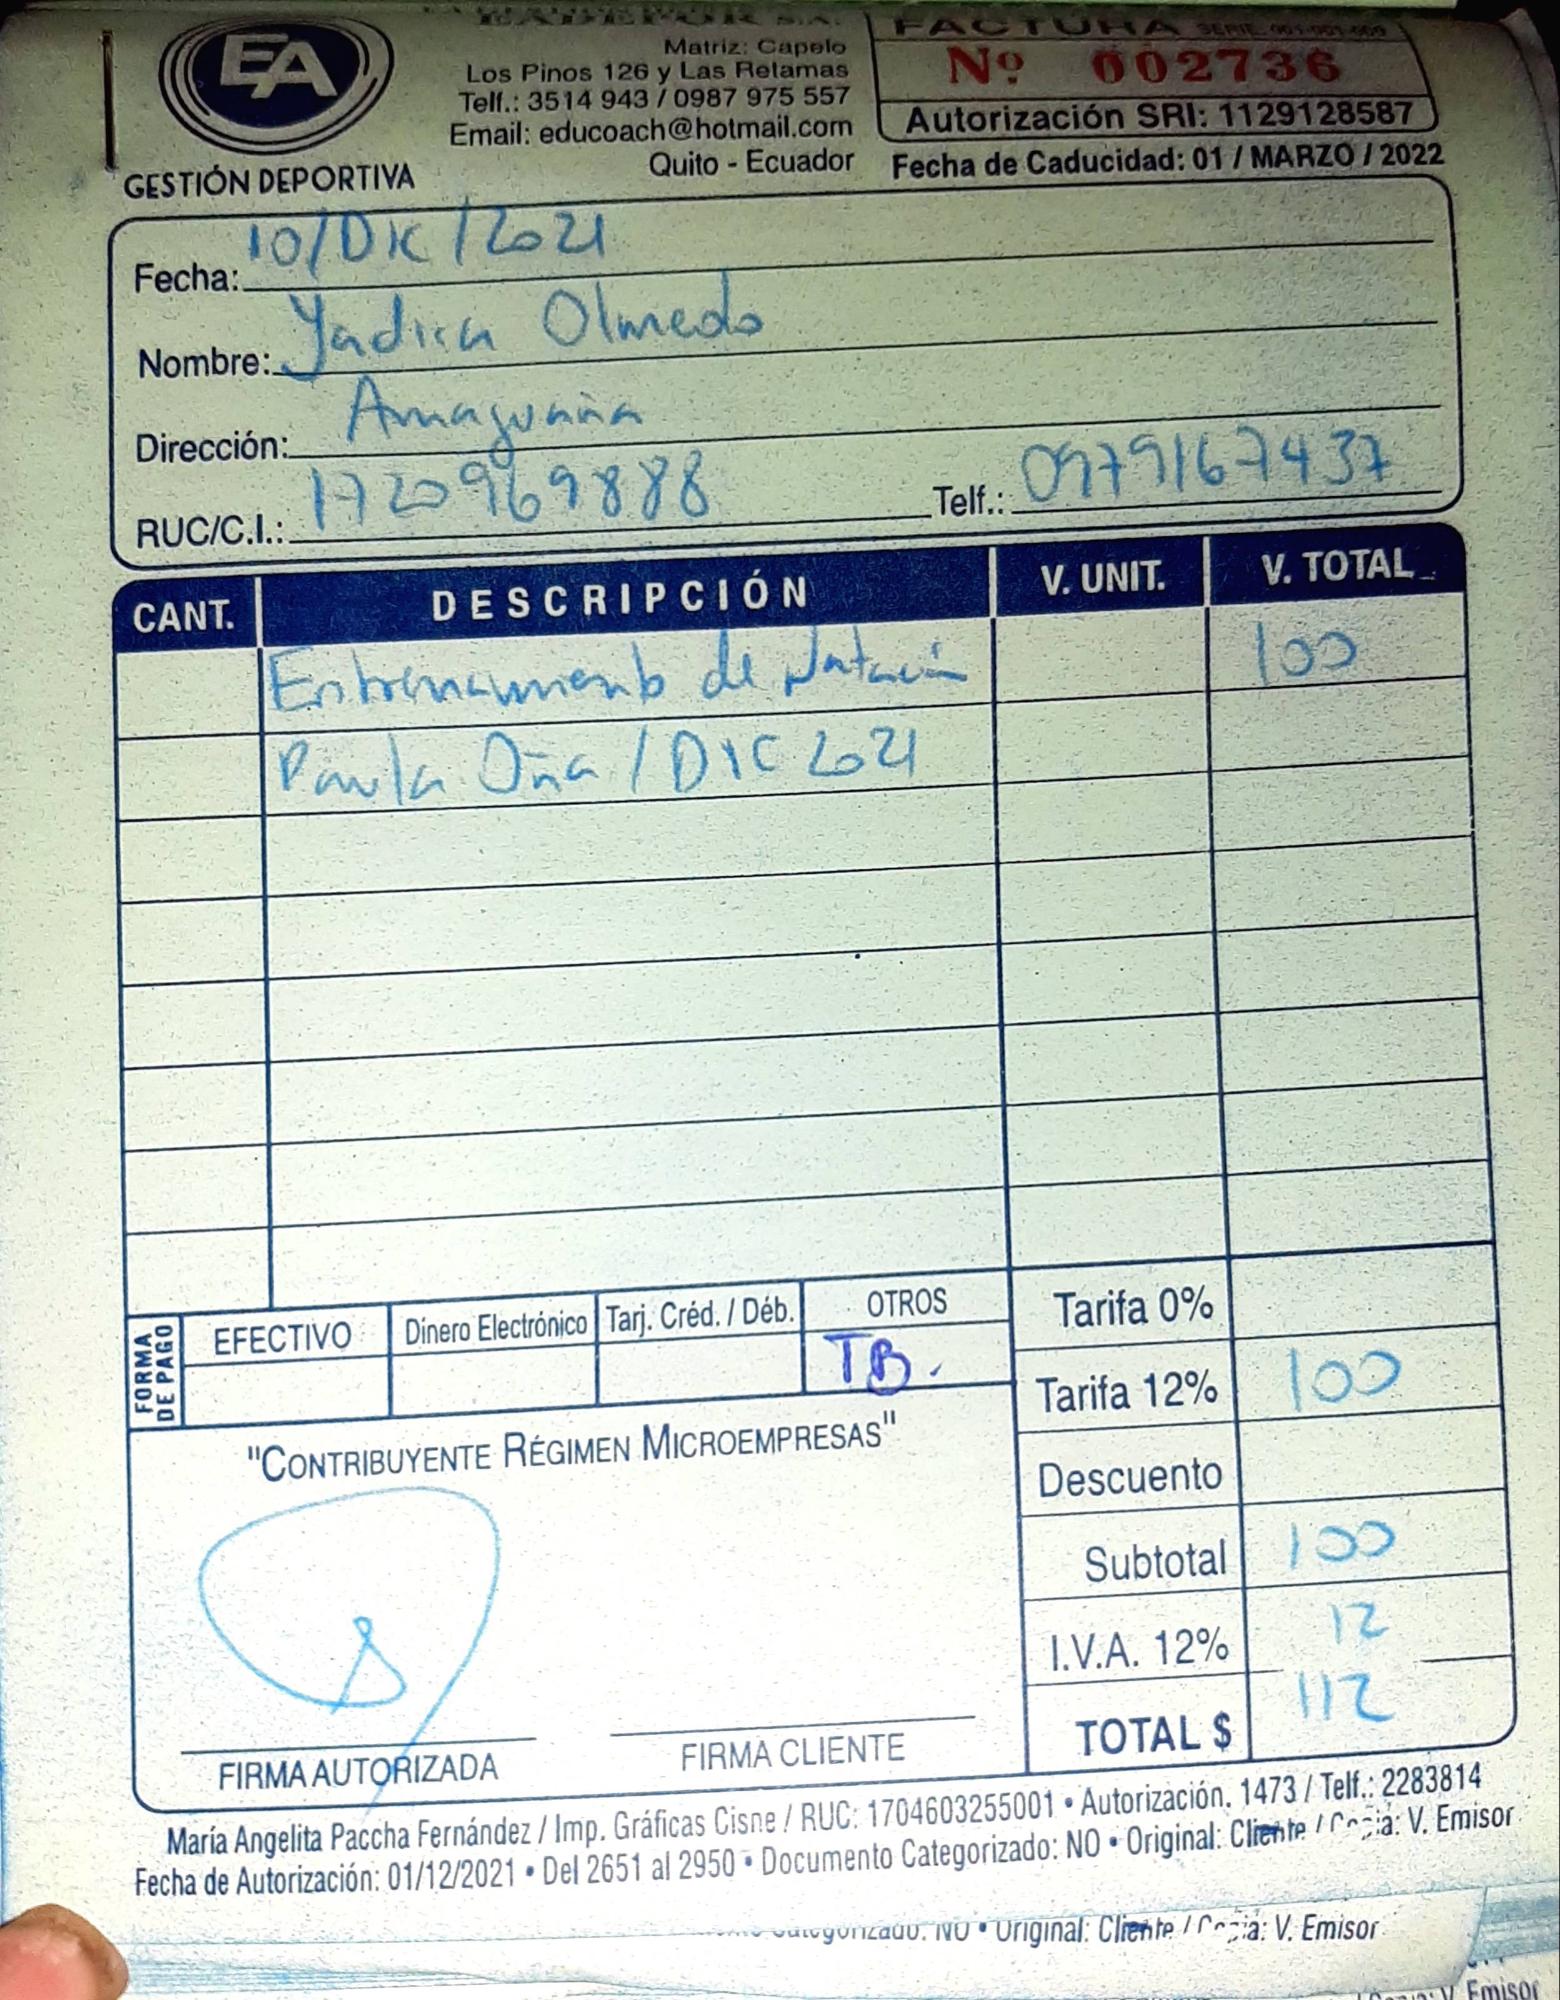 EADEPOR S.A.
EA
GESTIÓN DEPORTIVA
Matriz: Capelo
Los Pinos 126 y Las Retamas
Telf.: 3514 943 / 0987 975 557
Email: educoach@hotmail.com
Quito - Ecuador
FACTURA SERIE 001-001-000
Nº 002736
Autorización SRI: 1129128587
Fecha de Caducidad: 01 / MARZO / 2022
Fecha: 10/DIC/2021
Nombre: Yadira Olmedo
Dirección: Amaguaña
RUC/C.I.: 1720969888 Telf.: 0979167437
CANT. DESCRIPCIÓN V. UNIT. V. TOTAL
Entrenamiento de Natación 100
Paula Oña / DIC 2021
FORMA DE PAGO
EFECTIVO Dinero Electrónico Tarj. Créd. / Déb. OTROS
TB.
Tarifa 0%
Tarifa 12% 100
Descuento
Subtotal 100
I.V.A. 12% 12
TOTAL $ 112
"CONTRIBUYENTE RÉGIMEN MICROEMPRESAS"
FIRMA AUTORIZADA FIRMA CLIENTE
María Angelita Paccha Fernández / Imp. Gráficas Cisne / RUC: 1704603255001 • Autorización. 1473 / Telf.: 2283814
Fecha de Autorización: 01/12/2021 • Del 2651 al 2950 • Documento Categorizado: NO • Original: Cliente / Copia: V. Emisor
Categorizado: NO • Original: Cliente / Copia: V. Emisor
V. Emisor